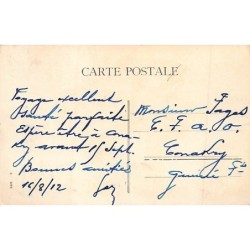 CARTE POSTALE
Voyage excellent
santé parfaite
Espère être à Cona-
kry avant 15 Sept.
Bonnes amitiés
16/8/12
Monsieur Pages
C. F. A. O.
Conakry
Guinée Fse